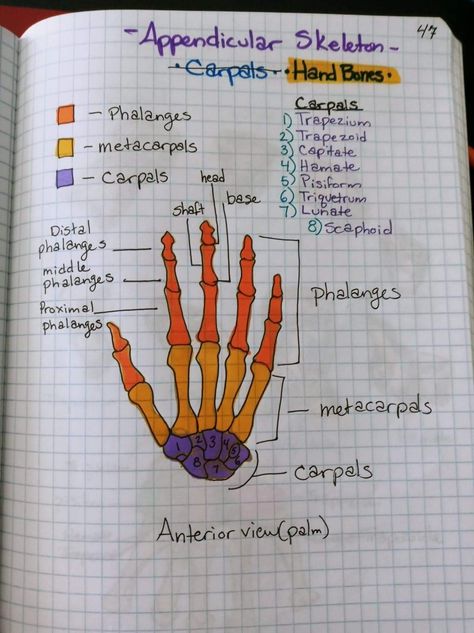 47
- Appendicular Skeleton -
Carpals • Hand Bones •
- Phalanges
- metacarpals
- Carpals
Carpals
1) Trapezium
2) Trapezoid
3) Capitate
4) Hamate
5) Pisiform
6) Triquetrum
7) Lunate
8) Scaphoid
head
shaft
base
Distal
phalanges
middle
phalanges
Proximal
phalanges
phalanges
metacarpals
carpals
1 2 3 4 5 6
8 7
Anterior view (palm)